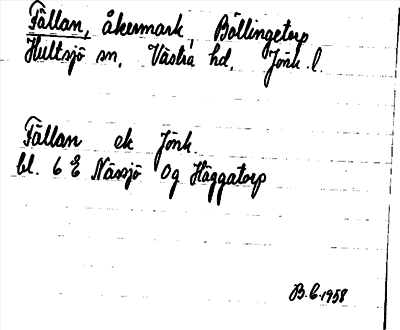 Fällan, åkermark, Böllingetorp
Hultsjö sn, Västra hd, Jönk. l.
Fällan ek Jönk
bl. 6 E Nässjö 0g Häggatorp
B.C. 1958